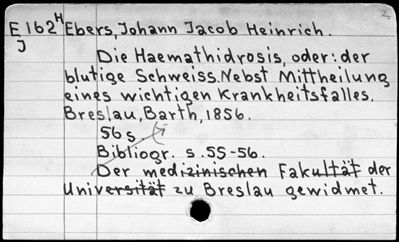 2
E 162 H Ebers, Johann Jacob Heinrich.
J
Die Haemathidrosis, oder: der
blutige Schweiss. Nebst Mittheilung
eines wichtigen Krankheitsfalles.
Breslau, Barth, 1856.
56 s.
Bibliogr. s. 55-56.
Der medizinischen Fakultät der
Universität zu Breslau gewidmet.